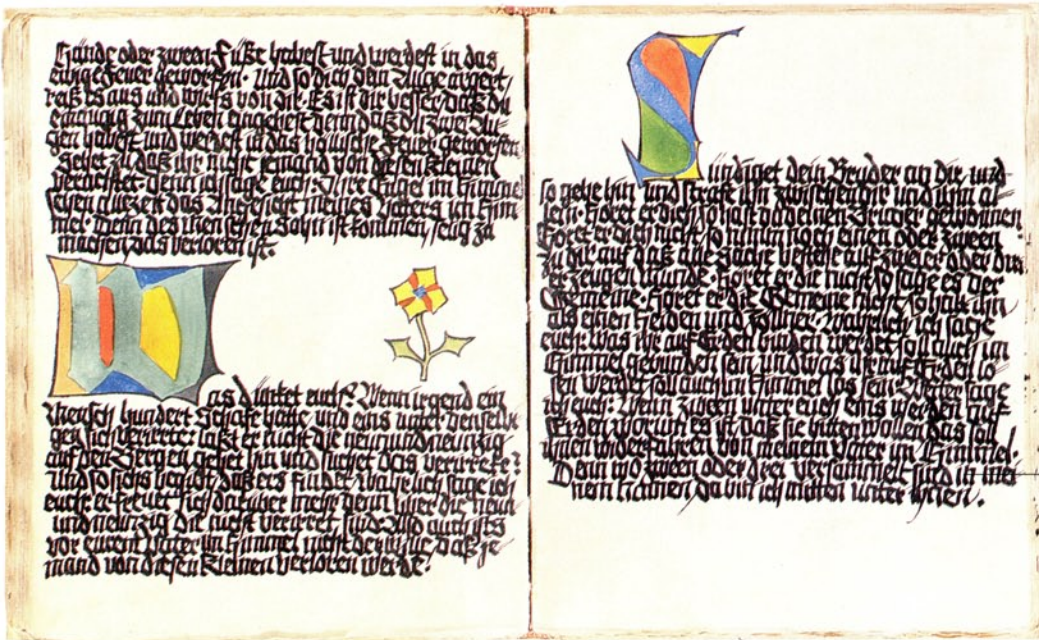 Hände oder zween Füße habest und werdest in das
ewige Feuer geworfen. Und so dich dein Auge ärgert,
reiß es aus und wirf's von dir. Es ist dir besser, daß du
einäugig zum Leben eingehest, denn daß du zwei Au-
gen habest und werdest in das höllische Feuer geworfen.
Sehet zu, daß ihr nicht jemand von diesen Kleinen
verachtet. Denn ich sage euch: Ihre Engel im Himmel
sehen allezeit das Angesicht meines Vaters im Him
mel. Denn des menschen Sohn ist kommen, selig zu
machen, das verloren ist.
Was dünket euch? Wenn irgend ein
Mensch hundert Schafe hätte und eins unter denselbi
gen sich verirrte: läßt er nicht die neunundneunzig
auf den Bergen, gehet hin und suchet das verirrete?
und so sichs begibt, daß ers findet, wahrlich sage ich
euch, er freuet sich darüber mehr denn über die neun
und neunzig die nicht verirret sind. Also auch ists
vor eurem Vater im Himmel nicht der Wille, daß je
mand von diesen Kleinen verloren werde.
Sündiget dein Bruder an dir, und
so gehe hin und strafe ihn zwischen dir und ihm al
lein. Höret er dich, so hast du deinen Bruder gewonnen.
Höret er dich nicht, so nimm noch einen oder zween
zu dir, auf daß alle Sache bestehe auf zweier oder drei
er Zeugen Munde. Höret er die nicht, so sage es der
Gemeine. Höret er die Gemeine nicht, so halt ihn
als einen Heiden und Zöllner. Wahrlich, ich sage
euch: was ihr auf Erden binden werdet, soll auch im
Himmel gebunden sein, und was ihr auf Erden lö
sen werdet, soll auch im Himmel los sein. Weiter sage
ich euch: Wenn zween unter euch eins werden auf
Erden, worum es ist, daß sie bitten wollen, das soll
ihnen widerfahren von meinem Vater im Himmel.
Denn wo zween oder drei versammelt sind in mei
nem Namen, da bin ich mitten unter ihnen.